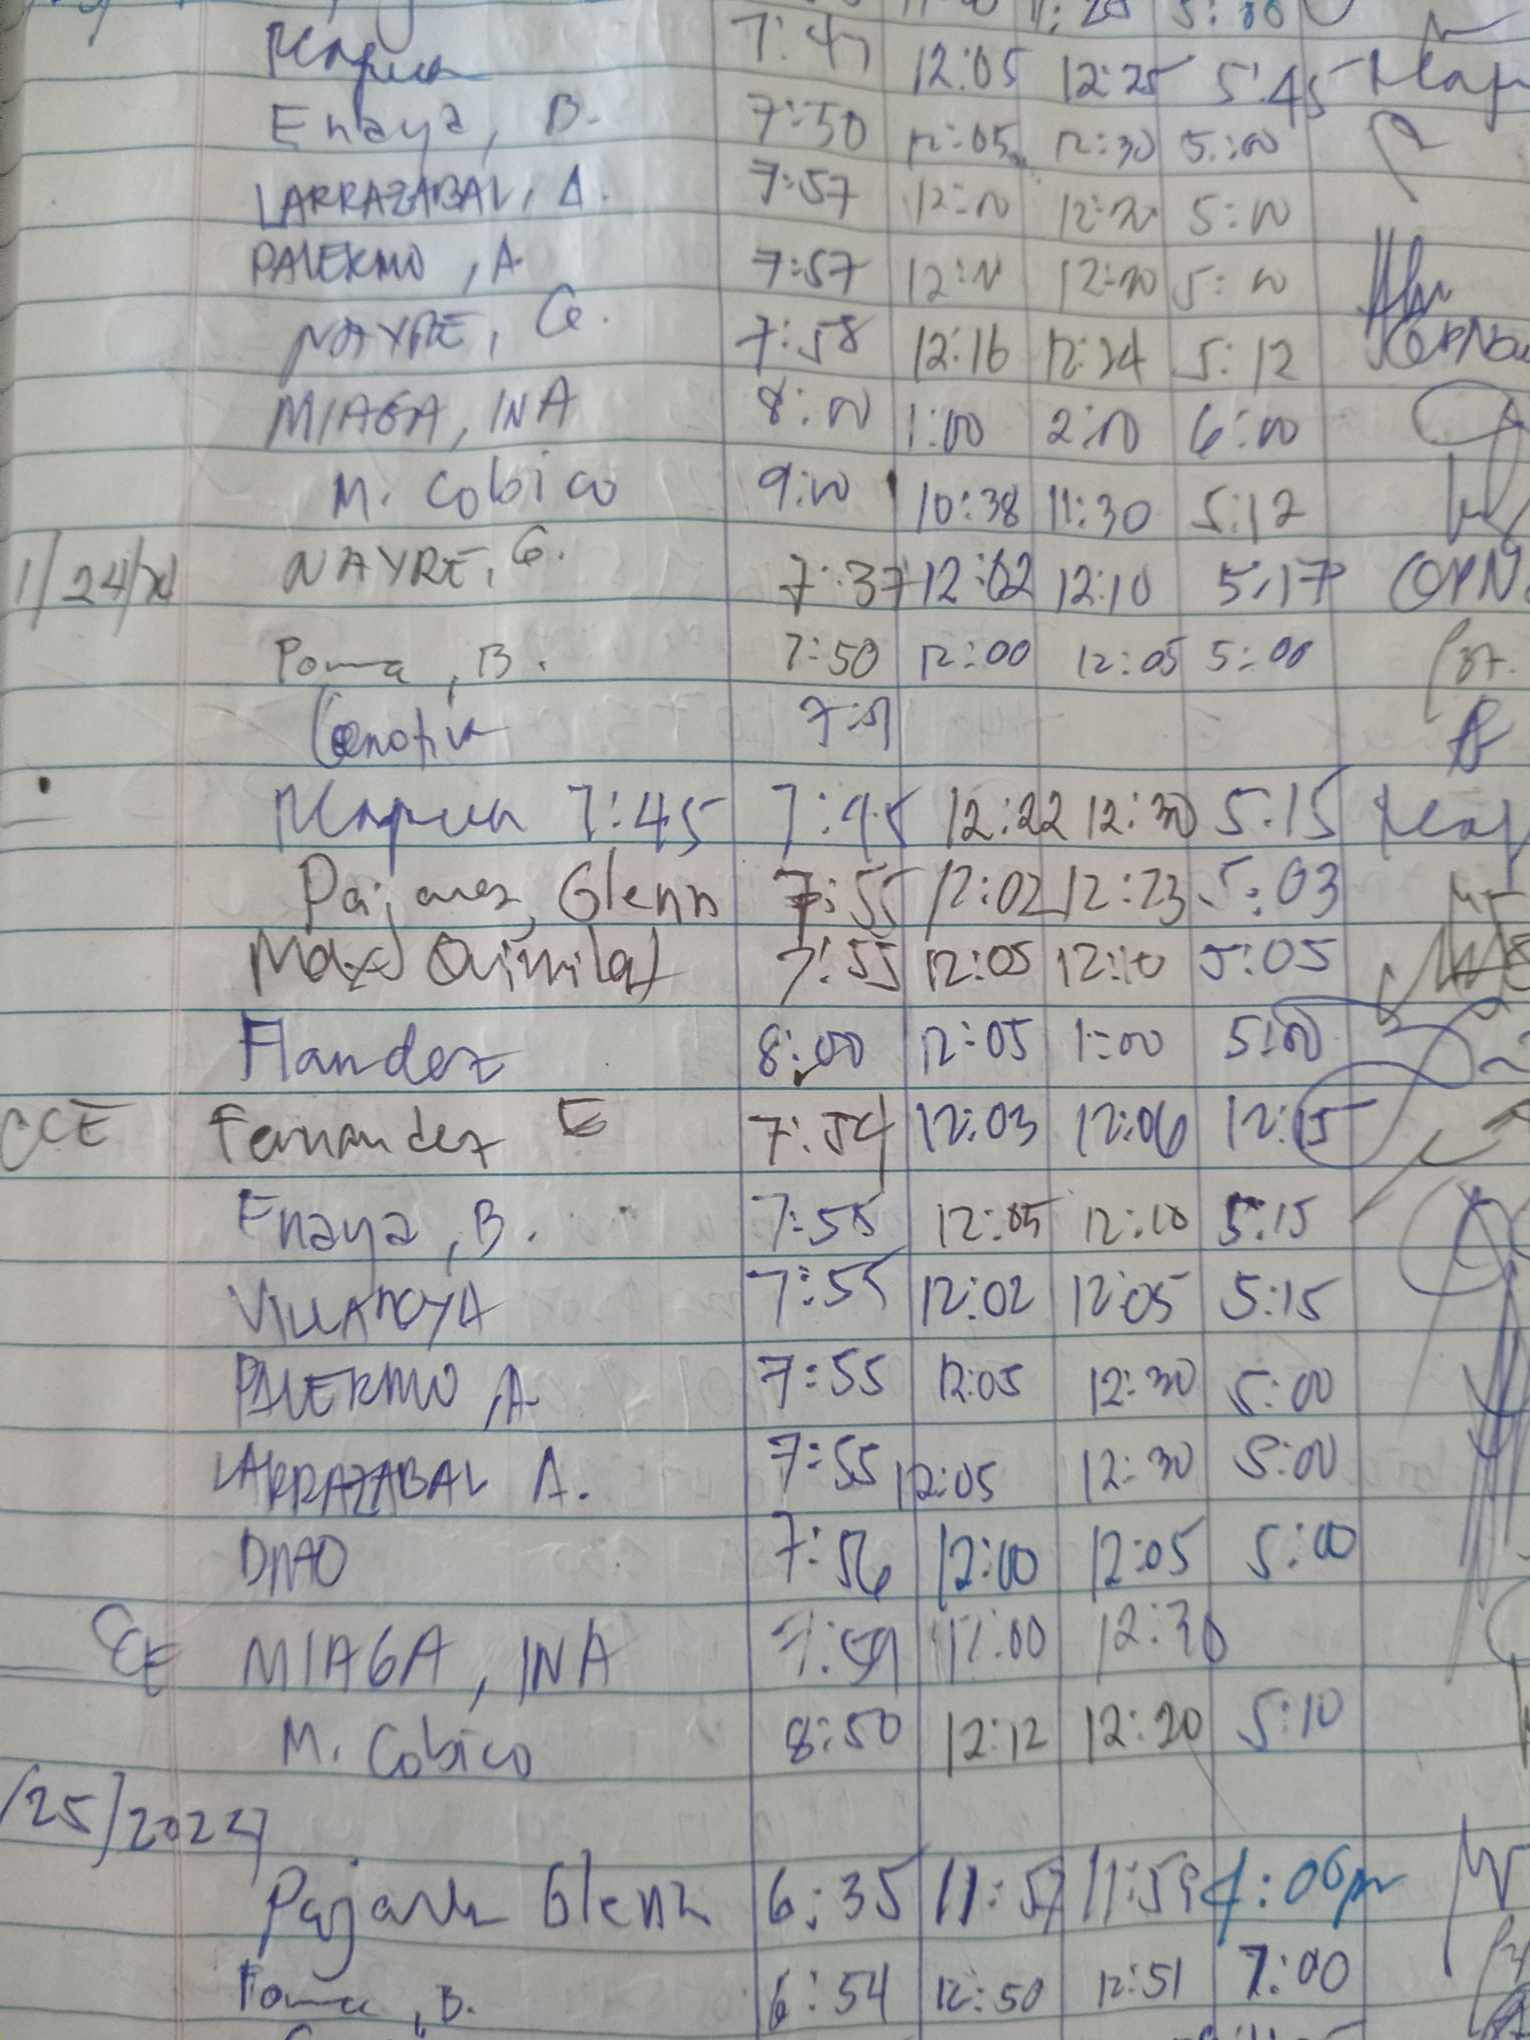 5:00
7:47 12:05 12:25 5:45
Enaya, B. 7:50 12:05 12:30 5:00
LARRAZABAL, A. 7:57 12:00 12:20 5:00
PALERMO, A 7:57 12:00 12:20 5:00
NAYRE, G. 7:58 12:16 12:24 5:12
MIAGA, INA 8:00 1:00 2:00 6:00
M. Cobico 9:00 10:38 11:30 5:12
1/24/ NAYRE, G. 7:37 12:02 12:10 5:17
B. 7:50 12:00 12:05 5:00
7:45 7:45 12:22 12:30 5:15
Pajares, Glenn 7:55 12:02 12:23 5:03
7:55 12:05 12:10 5:05
Flandez 8:00 12:05 1:00 5:00
CCE Fernandez E 7:54 12:03 12:06 12:15
Enaya, B. 7:55 12:05 12:10 5:15
VILLANOYA 7:55 12:02 12:05 5:15
PALERMO, A 7:55 12:05 12:30 5:00
LARRAZABAL A. 7:55 12:05 12:30 5:00
7:56 12:00 12:05 5:00
CCE MIAGA, INA 7:59 12:00 12:30
M. Cobico 8:50 12:12 12:20 5:10
/25/2024
Glenn 6:35 11:57 11:59 4:06pm
B. 6:54 12:50 12:51 7:00